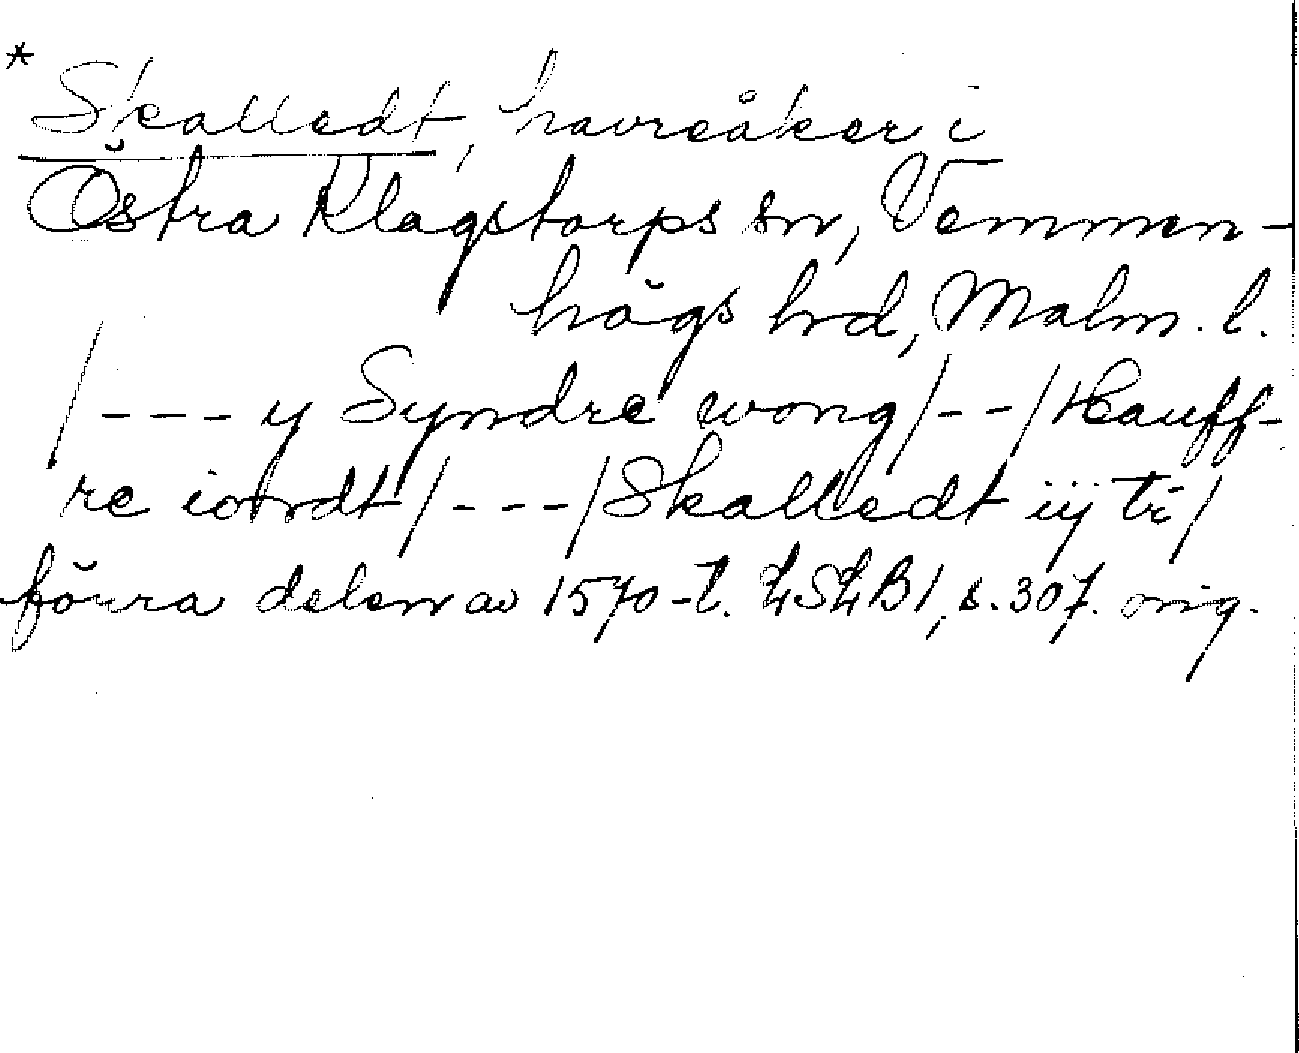 * Skalledt, havreåker i
Östra Klagstorps sn, Vemmen-
högs hd, Malm. l.
/--- y Syndre wong/--/Hauff-
re iordt/---/Skalledt iij tr/
förra delen av 1570-t. LSLB1, s. 307. orig.